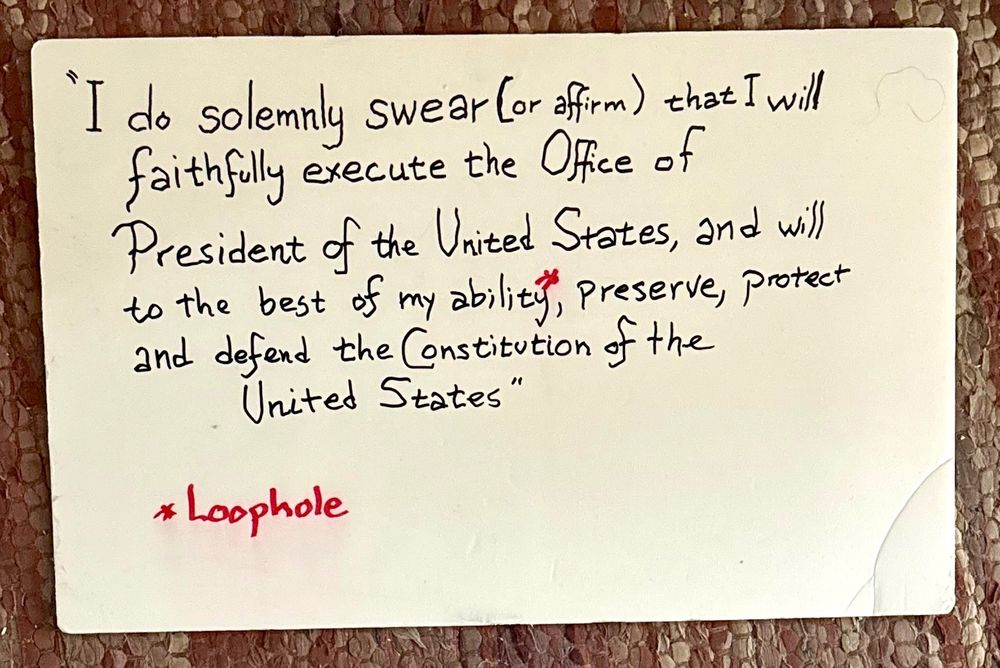 "I do solemnly swear (or affirm) that I will
faithfully execute the Office of
President of the United States, and will
to the best of my ability*, preserve, protect
and defend the Constitution of the
United States"
* Loophole